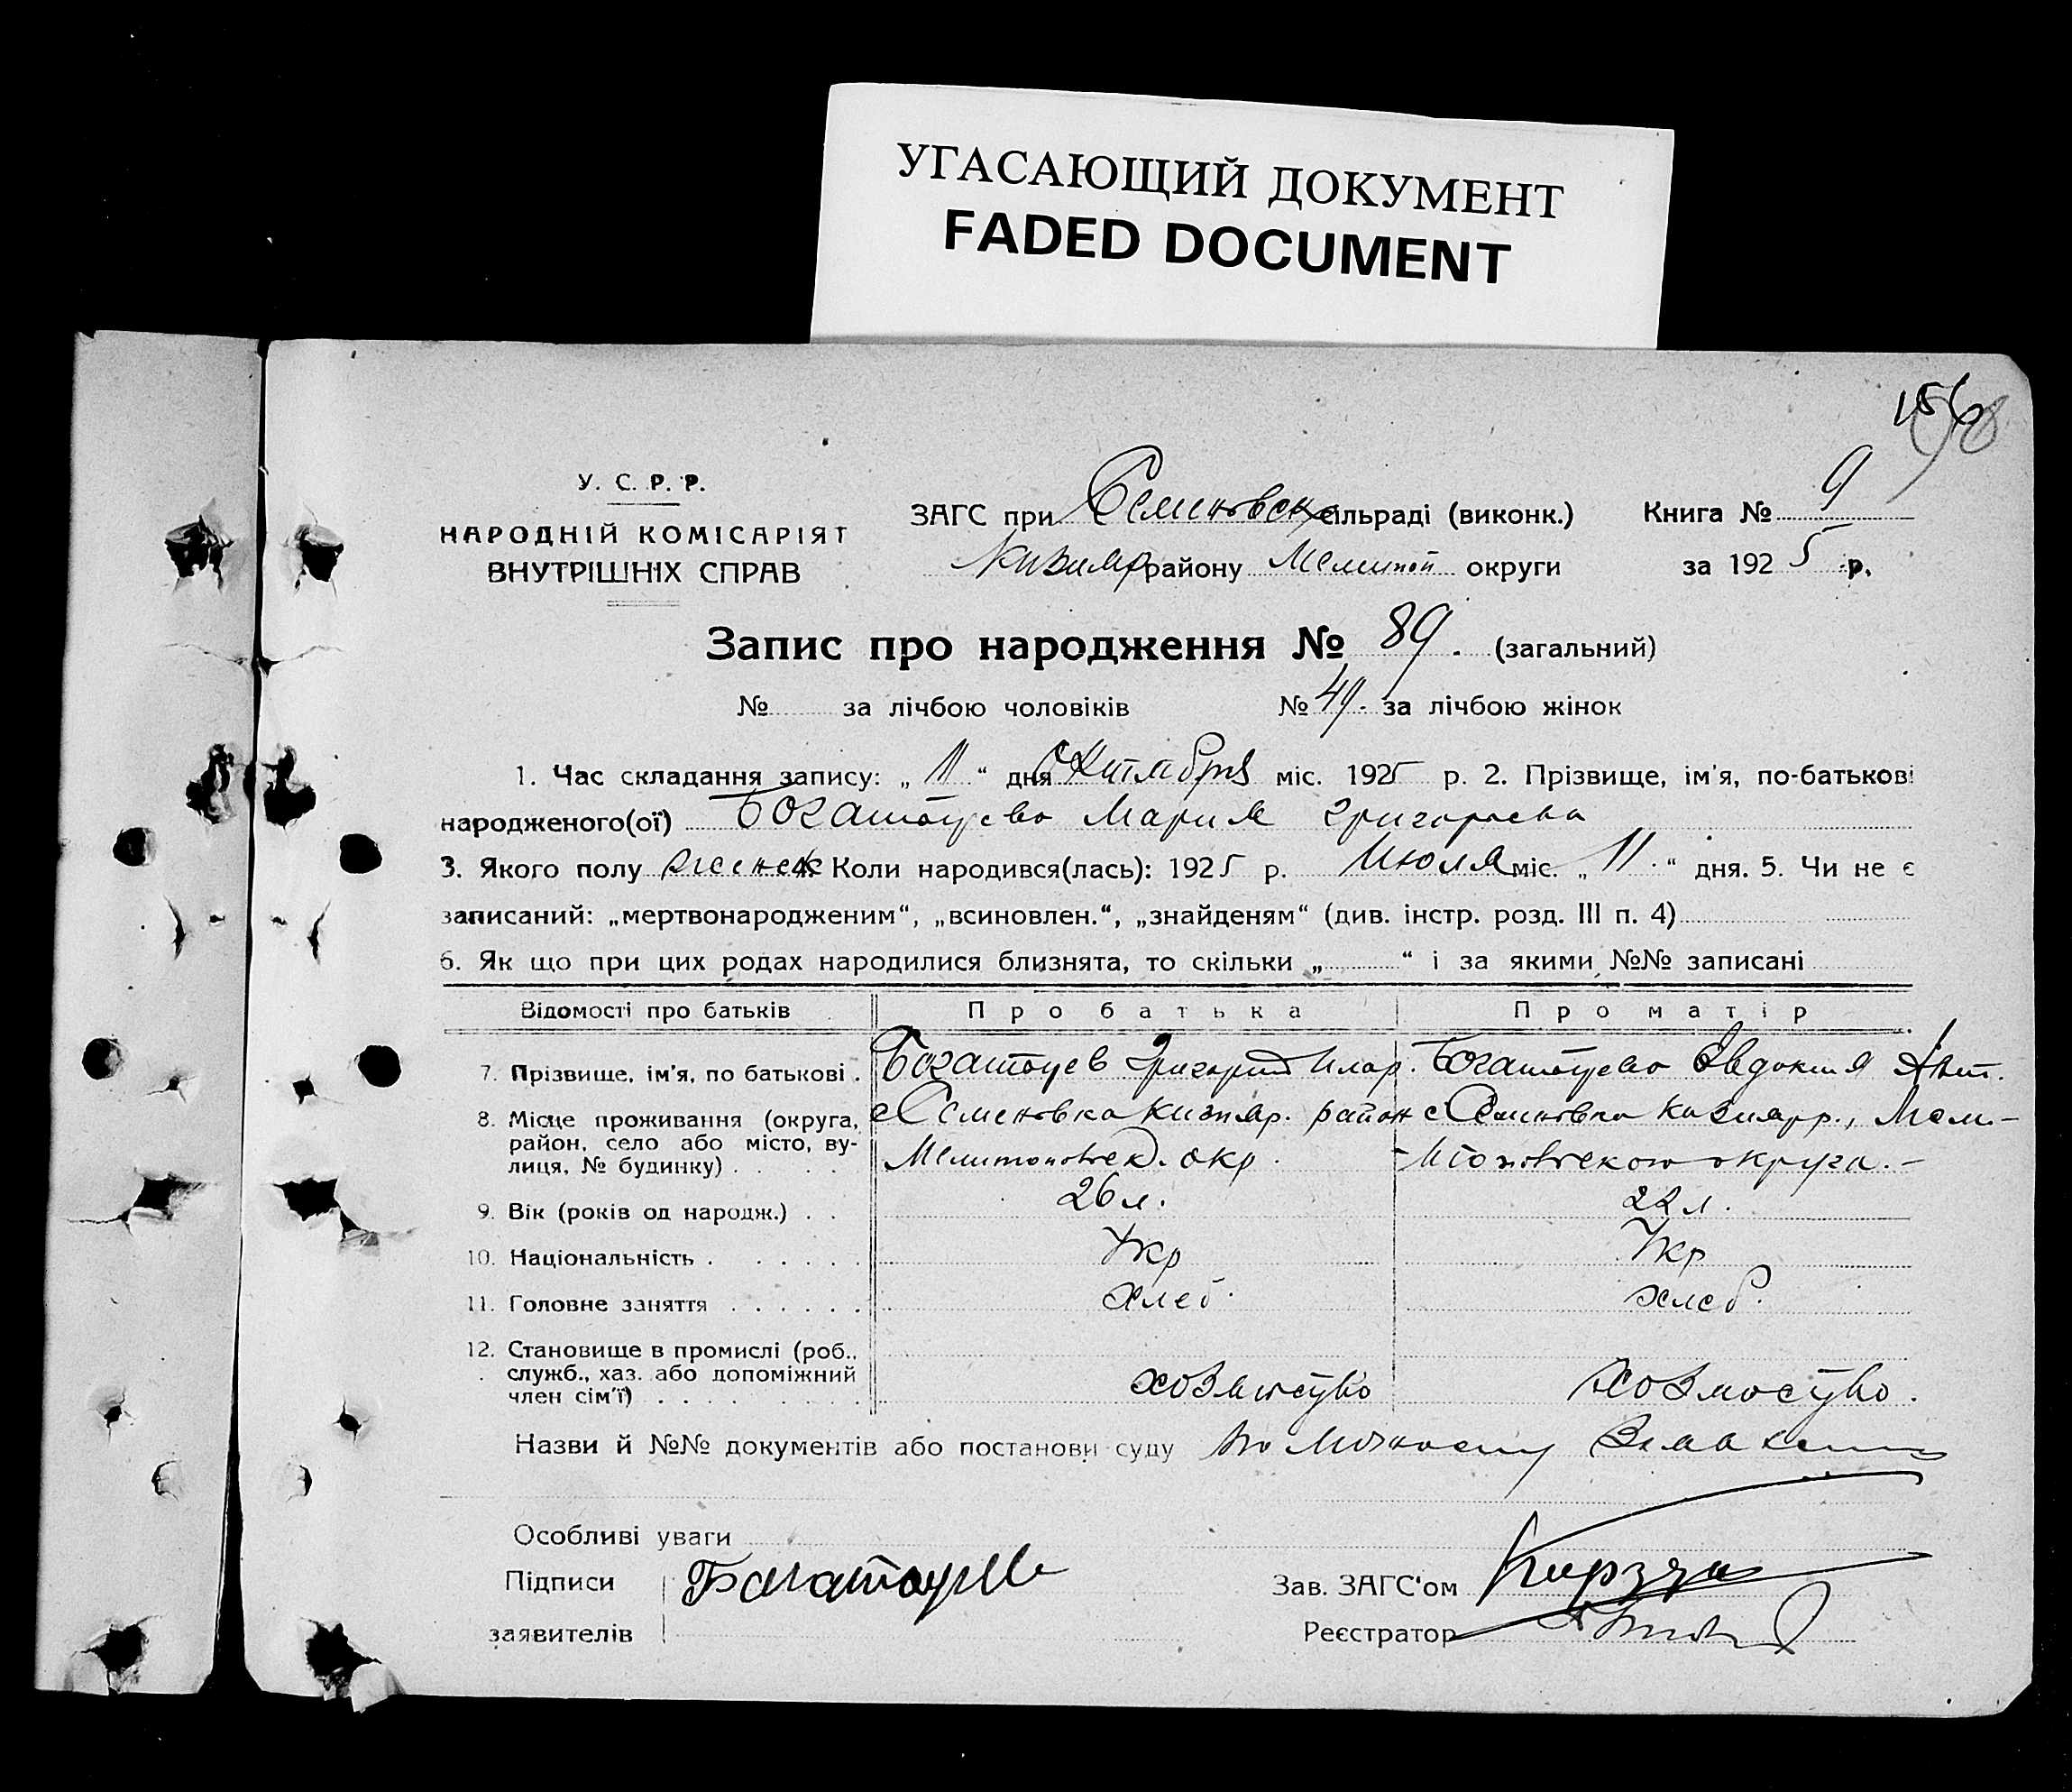 УГАСАЮЩИЙ ДОКУМЕНТ
FADED DOCUMENT
У. С. Р. Р.
НАРОДНІЙ КОМІСАРІЯТ
ВНУТРІШНІХ СПРАВ
ЗАГС при Семеновск сільраді (виконк.) Книга № 9
Кизияр району Мелитоп округи за 1925 р.
Запис про народження № 89. (загальний)
№ за лічбою чоловіків № 49. за лічбою жінок
1. Час складання запису: „ 11 “ дня Октября міс. 1925 р. 2. Прізвище, ім'я, по-батькові
народженого(ої) Богатоцева Мария Григорьева
3. Якого полу женск 4. Коли народився(лась): 1925 р. Июля міс. „ 11. “ дня. 5. Чи не є
записаний: „мертвонародженим“, „всиновлен.“, „знайденям“ (див. інстр. розд. III п. 4)
6. Як що при цих родах народилися близнята, то скільки „ “ і за якими №№ записані
Відомості про батьків Про батька Про матір
7. Прізвище, ім'я, по батькові . Богатоцев Григорий Илар. Богатоцева Евдокия Ант.
8. Місце проживання (округа, район, село або місто, вулиця, № будинку) . с Семеновка Кизияр. район с Семеновка Кизиярр., Мели-
Мелитоповск. окр. -топовского округа.-
9. Вік (років од народж.) . . 26 л. 22 л.
10. Національність . Укр Укр
11. Головне заняття . хлеб. хлеб.
12. Становище в промислі (роб., служб., хаз. або допоміжний член сім'ї) .
Назви й №№ документів або постанови суду по
Особливі уваги
Підписи
заявителів
Зав. ЗАГС'ом
Реєстратор